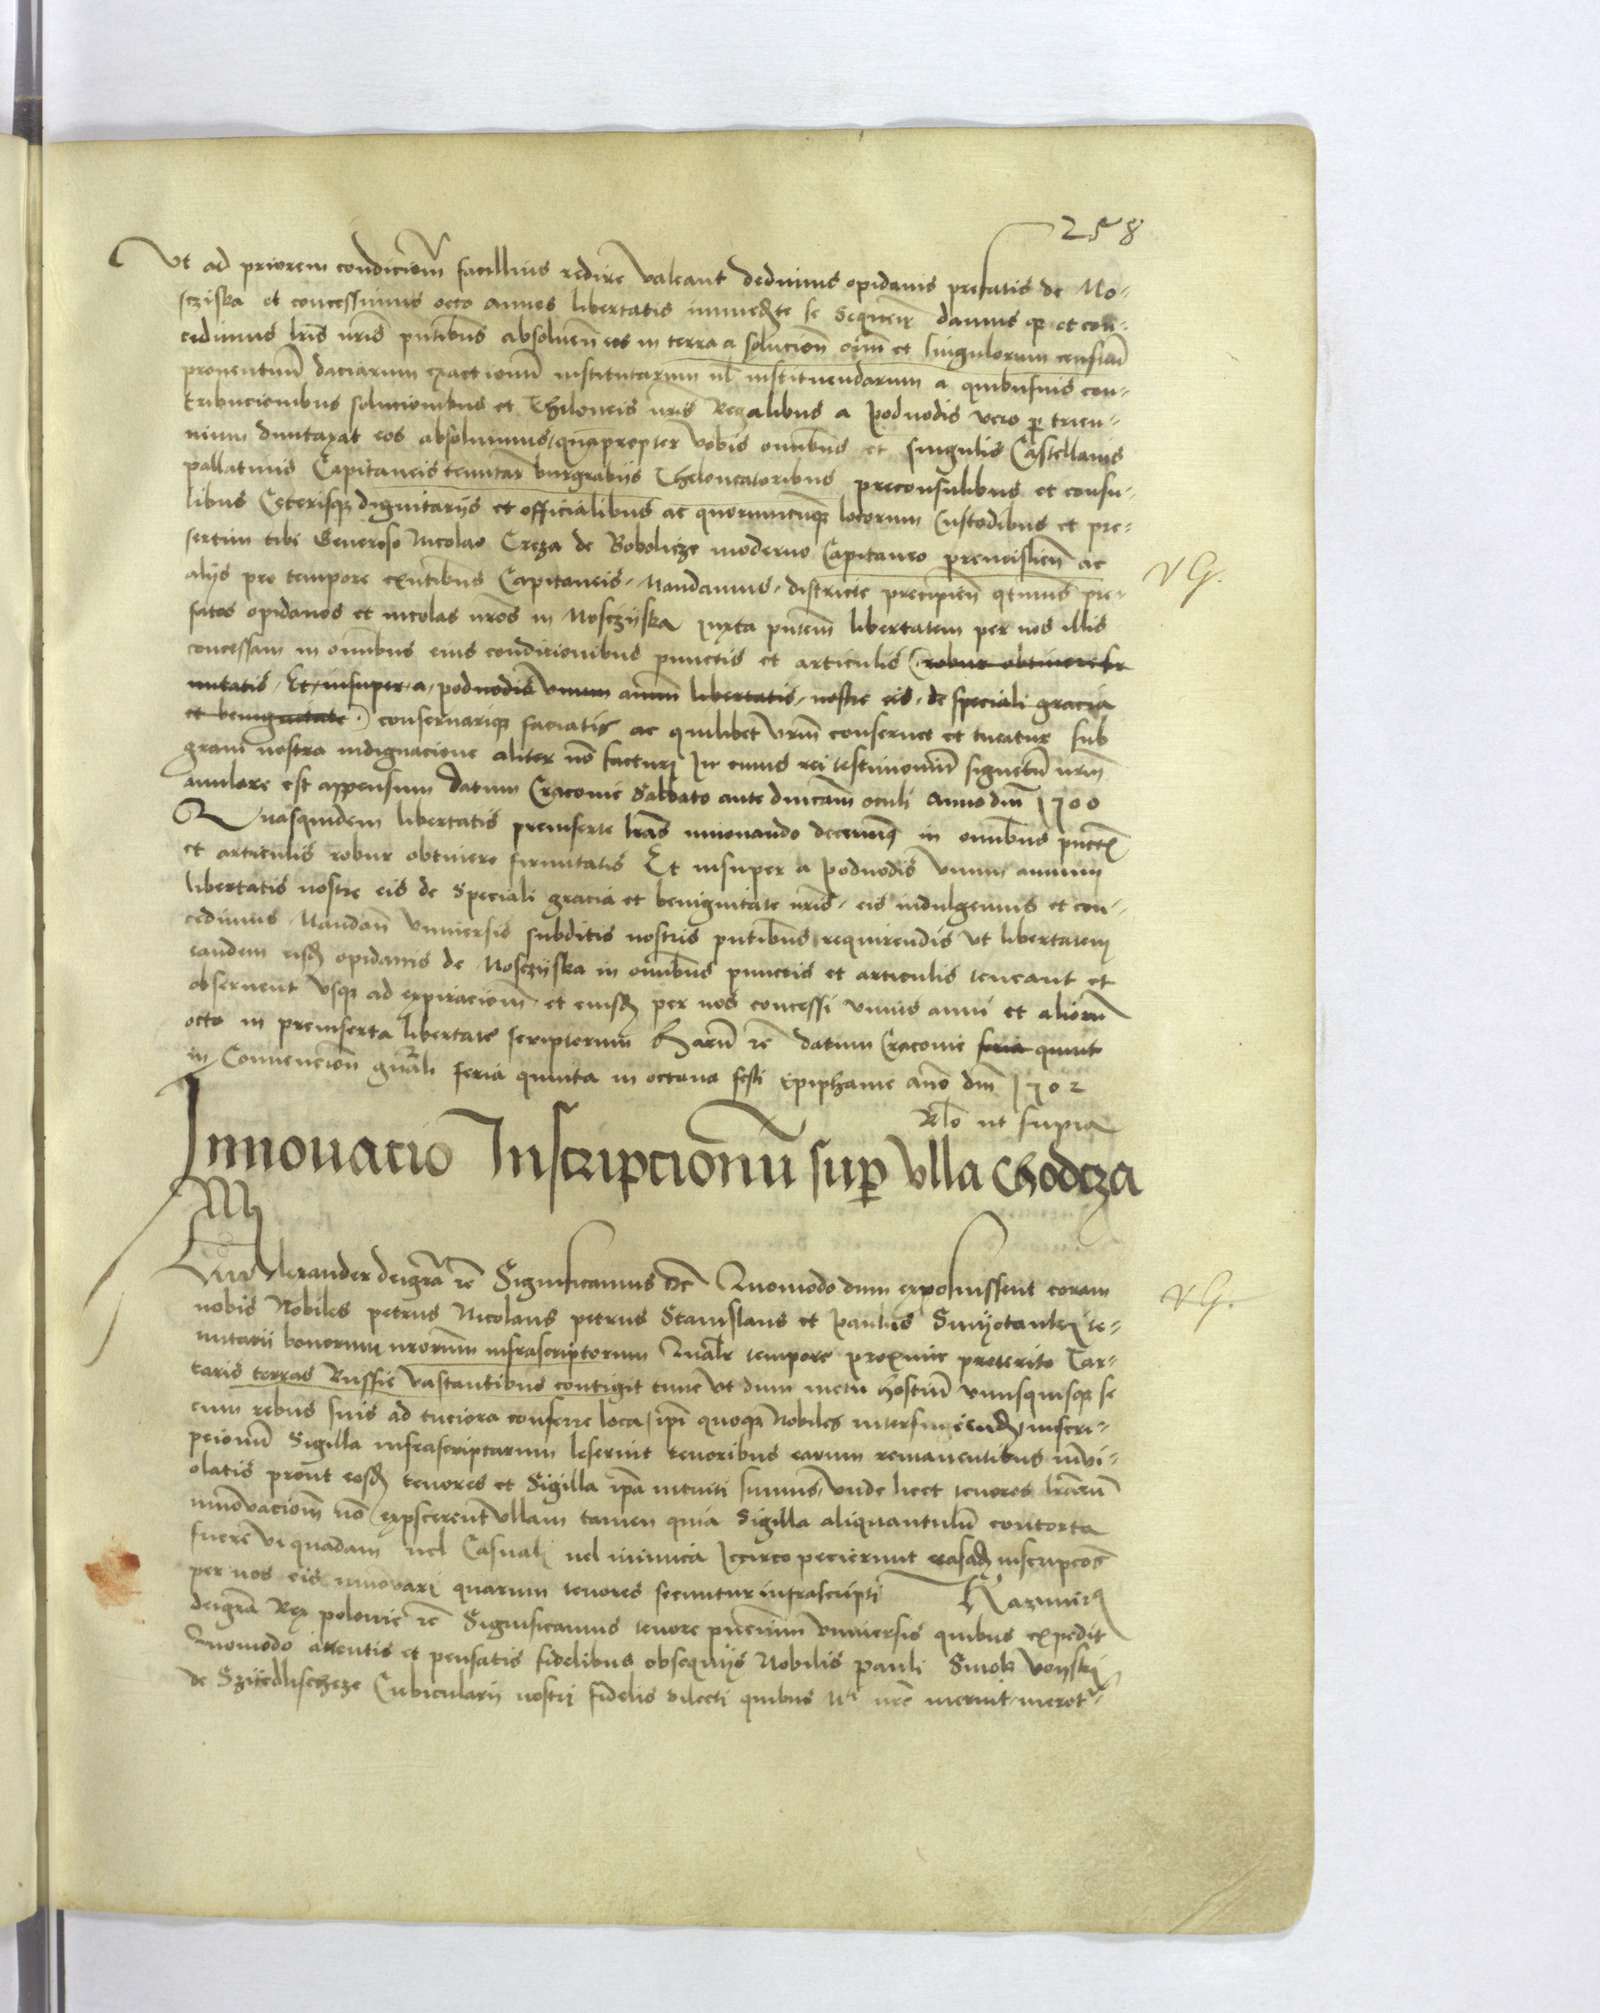 258
Vt ad priorem condicionem facilius redire valeant dedimus opidanis prefatis de Mo-
sciska et concessimus octo annos libertatis immediate se sequentes damusque et con-
cedimus lris nris pntibus absoluen eos in terra a solucion oim et singulorum censuum
prouentuum daciarum exactionum institutarum ul instituendarum a quibusuis con-
tribucionibus solucionibus et Theloneis nris Regalibus a poduodis vero per trien-
nium duntaxat eos absoluimus quapropter vobis omnibus et singulis Castellanis
pallatinis Capitaneis tenutar burgrabiis Theloneatoribus preconsulibus et consu-
libus Ceterisque dignitariis et officialibus ac quorumcunque locorum Custodibus et pre-
sertim tibi Generoso Nicolao Creza de Bobolicze moderno Capitaneo premislien ac
alys pro tempore exntibus Capitaneis Mandamus districte precipien qtinus pre-
fatos opidanos et incolas nros in Mosczyska Juxta pntem libertatem per nos illis
concessam in omnibus eius condicionibus punctis et articulis robur obtinere fir
mitatis Et insuper a poduodis vnum annum libertatis nostre eis de speciali gracia
et benignitate conseruarique faciatis ac quilibet vrm conseruet et tueatur sub
graui nostra indignacione aliter no facturi In cuius rei testimonium signetum nrm
anulare est appensum Datum Cracouie Sabbato ante dnicam oculi Anno dni 1500
Quasquidem libertatis preinserte lras innouando decernimus in omnibus punctis
et articulis robur obtinere firmitatis Et insuper a poduodis vnum annum
libertatis nostre eis de Speciali gracia et benignitate nris eis indulgemus et con-
cedimus Mandan vniuersis subditis nostris pntibus requirendis vt libertatem
eandem eisdem opidanis de Mosczyska in omnibus punctis et articulis teneant et
obseruent vsque ad expiracionem et eiusdem per nos concessi vnius anni et aliorum
octo in preinserta libertate scriptorum Harum re Datum Cracouie feria quint
in Conuencion gnali feria quinta in octaua festi Epiphanie Ano dni 1502
Rlo ut supra
Innouatio Inscriptionum sup villa Chodcza
Alexander dei gra re Significamus etc Quomodo dum exposuissent coram
nobis Nobiles petrus Nicolaus petrus Stanislaus et paulus Swyotanczi te-
nutarii bonorum nrorum infrascriptorum Qualr tempore proxime preterito Tar-
taris terras Russie vastantibus contigit tunc vt dum metu hostium vnusquisque se
cum rebus suis ad tuciora conferre loca ipi quoque Nobiles inter fugiendum inscri-
pcionum Sigilla infrascriptarum leserint tenoribus earum remanentibus inui-
olatis prout eosdem tenores et Sigilla ipa intuiti sumus vnde licet tenores lrarum
innouacionem no expscerent vllam tamen quia Sigilla aliquantulum contorta
fuere vi quadam uel Casuali uel inimica Iccirco pecierunt easdem inscripcos
per nos eis innouari quarum tenores secuntur infrascripti Kazimirus
dei gra Rex polonie re Significamus tenore pncium vniuersis quibus expedit
Quomodo attentis et pensatis fidelibus obsequiis Nobilis pauli Smok
de Cubicularii nostri fidelis dilecti quibus nre meruit